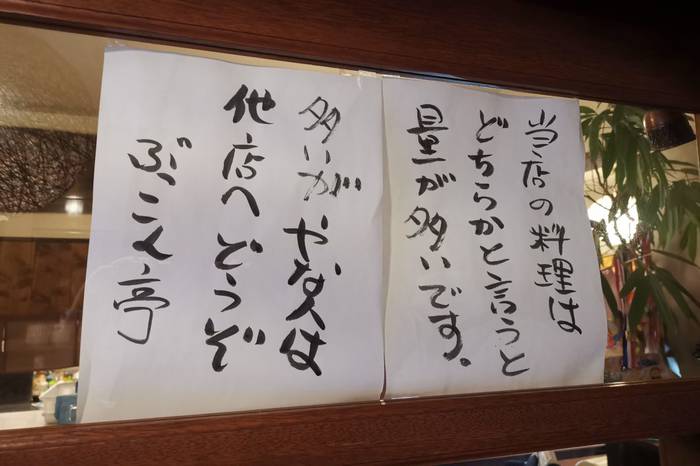 当店の料理は
どちらかと言うと
量が多いです。
多いが やな人は
他店へ どうぞ
ぶっこん亭